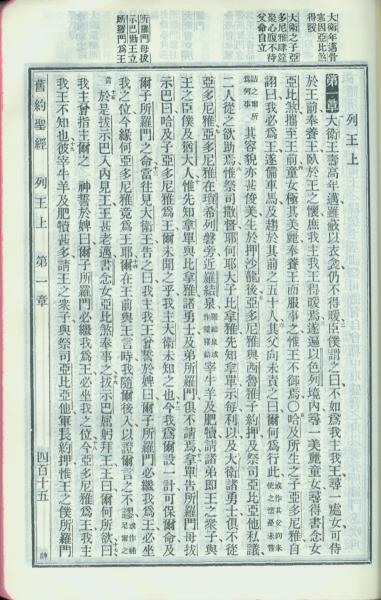 列王上
第一章 大衛王壽高年邁雖蔽以衣衾仍不得暖臣僕謂之曰不如爲我主我王尋一處女可侍
於王前奉養王臥於王之懷庶我主我王得暖焉遂遍以色列境內尋一美麗童女尋得書念女
亞比煞攜至王前童女極其美麗奉養王而服事之惟王不御焉〇哈及所生之子亞多尼雅自
詡曰我必爲王遂備車馬及趨於其前之五十人其父向未責之曰爾何爲行此
其容貌亦甚俊美生於押沙龍後亞多尼雅與西魯雅子約押及祭司亞比亞他私議
二人從之欲助焉惟祭司撒督耶何耶大子比拿雅先知拿單示每利以及大衛諸勇士俱不從
亞多尼雅亞多尼雅在瑣希列磐旁近羅結泉宰牛羊及肥犢請諸弟即王之衆子與
王之臣僕及猶大人惟先知拿單與比拿雅諸勇士及弟所羅門俱不請焉拿單告所羅門母拔
示巴曰哈及子亞多尼雅爲王爾未聞之乎我主大衛未知之也今我爲爾設一計可保爾命及
爾子所羅門之命當往見大衛王告之曰我主我王曾誓於婢曰爾子所羅門必繼我爲王必坐
我之位今緣何亞多尼雅竟爲王耶爾在王前與王言時我隨爾後入以證爾言之不謬
於是拔示巴入內見王王甚老邁書念女亞比煞奉事之拔示巴屈躬拜王王曰爾何所欲曰
我主曾指主爾之神誓於婢曰爾子所羅門必繼我爲王必坐我之位今亞多尼雅爲王我主
我王不知也彼宰牛羊及肥犢甚多請王之衆子與祭司亞比亞他軍長約押惟王之僕所羅門
大衛年邁骨
寒因亞比煞
得暖
大衛之子亞
多尼雅肆筵
衆心腹不待
父命自立
所羅門母拔
示巴勸王立
所羅門爲王
舊約聖經 列王上 第一章 四百十五